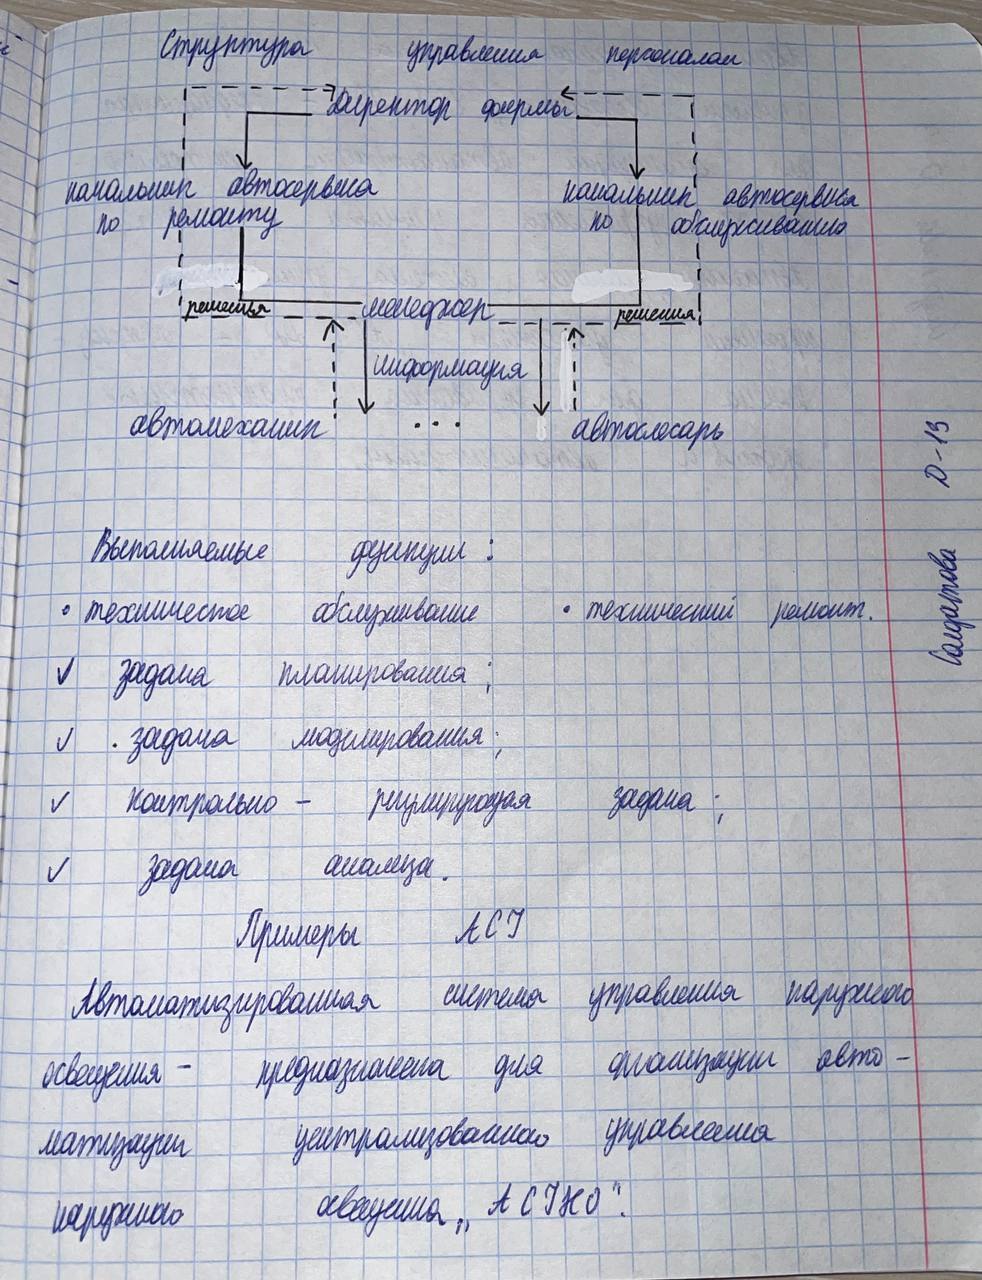 Структура управления персоналом
Директор фирмы
начальник автосервиса
по ремонту
начальник автосервиса
по обслуживанию
решения
менеджер
решения
информация
автомеханик
...
автослесарь
Выполняемые функции:
• техническое обслуживание • технический ремонт.
✓ задача планирования;
✓ . задача моделирования;
✓ контрольно - регулирующая задача;
✓ задача анализа.
Примеры АСУ
Автоматизированная система управления наружного
освещения - предназначена для организации авто-
матизации централизованного управления
наружного освещения „АСУНО".
Солдатова Д-13